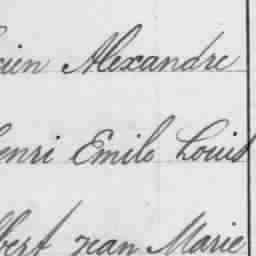 cien Alexandre
enri Emile Louis
bert Jean Marie